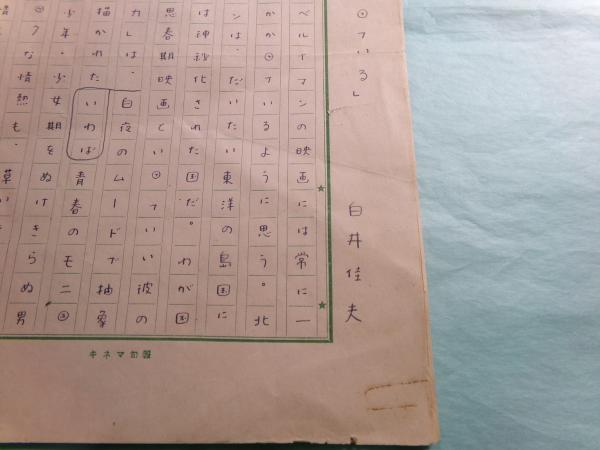 っている」
白井佳夫
ベルイマンの映画には常に一
かかっているように思う。北
ンは、だいたい東洋の島国に
は神秘化された国だ。わが国
思春期映画といっていい彼の
カ」は、白夜のムードで抽象
描かれたいわば青春のモニュ
少年・少女期をぬけきらぬ男
うな情熱も、草い
キネマ旬報